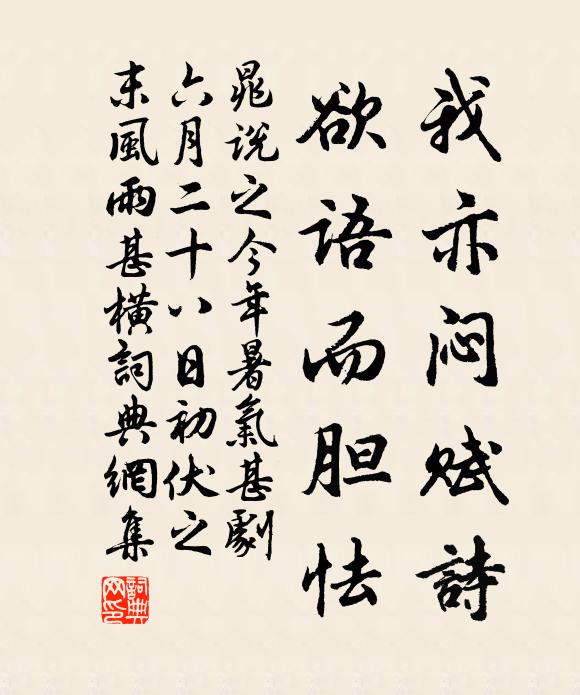 我亦闷赋詩
欲語而胆怯
晁説之今年暑氣甚劇
六月二十八日初伏之
末風雨甚横詞典網集
詞典
网印